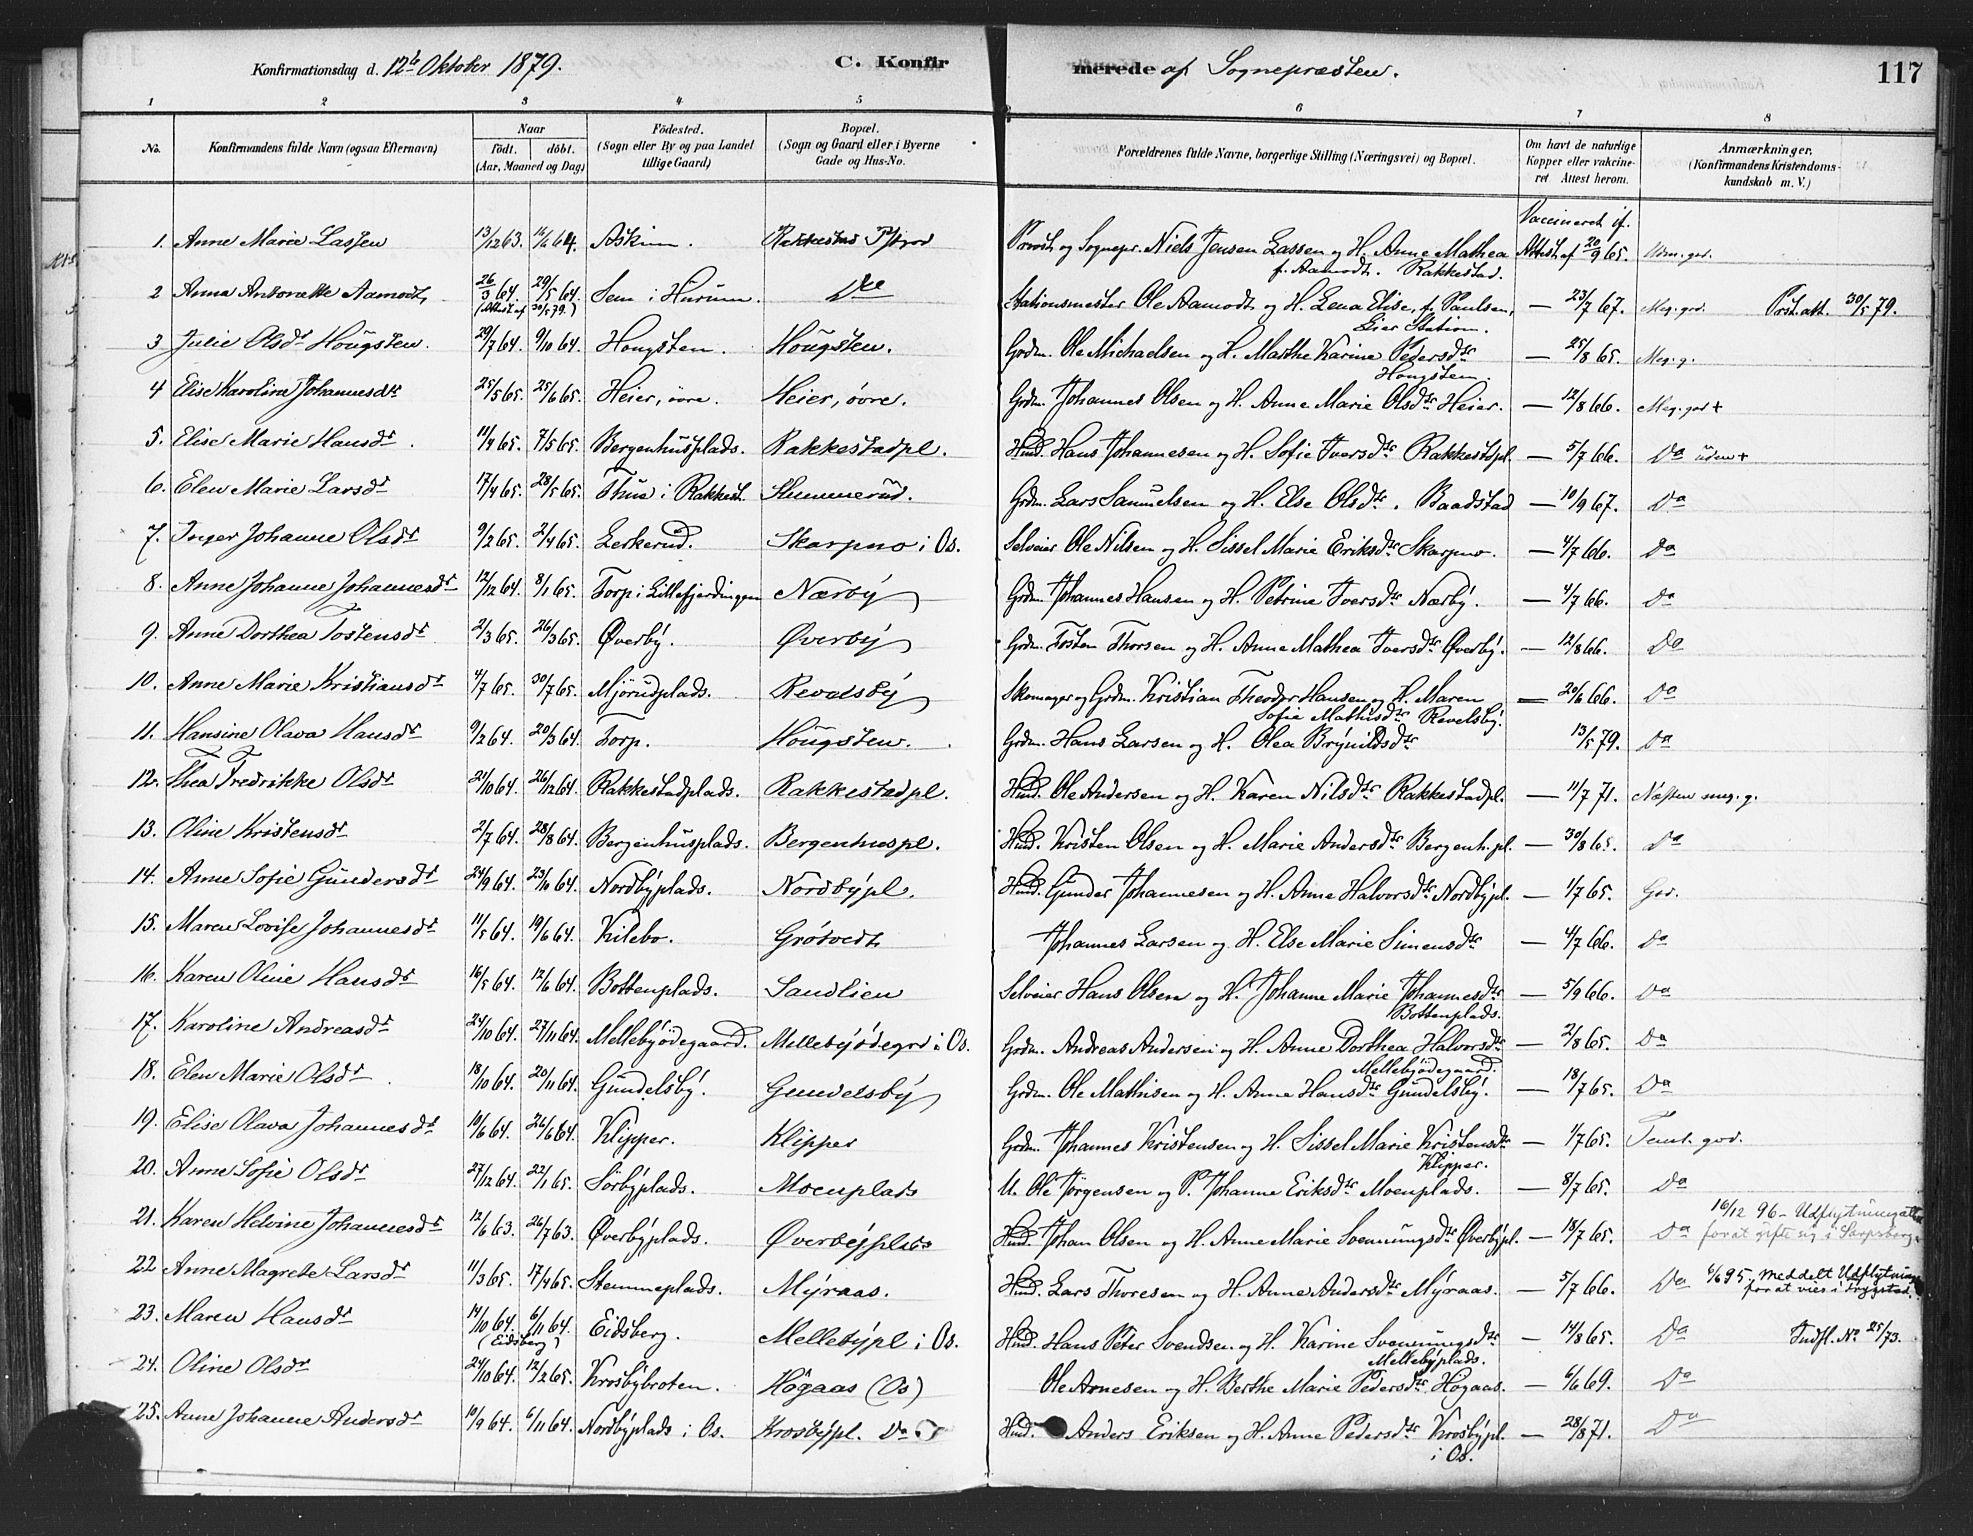 Konfirmationsdag d. 12te Oktober 1879. C. Konfirmerede af Sognepræsten. 117
1 2 3 4 5 6 7 8
No. Konfirmandens fulde Navn (ogsaa Efternavn) Naar født. døbt. (Aar, Maaned og Dag) Fødested. (Sogn eller By og paa Landet tillige Gaard) Bopæl. (Sogn og Gaard eller i Byerne Gade og Hus-No. Forældrenes fulde Navne, borgerlige Stilling (Næringsvei) og Bopæl. Om havt de naturlige Kopper eller vakcineret Attest herom. Anmærkninger. (Konfirmandens Kristendomskundskab m. V.)
Vaccineret if.
1. Anne Marie Lassen 13/12 63. 16/6 64. Askim. Rakkestad Pstgrd Provst og Sognepr. Niels Jensen Lassen og H. Anne Mathea Attest af 20/9 65. Udm. god.
f. Aamodt. Rakkestad.
2 Anna Antonette Aamodt, 26/3 64. 29/5 64. Sem i Hurum. Do Stationsmester Ole Aamodt og H. Lena Elise, f. Paulsen, — 23/7 67. Meg. god. Prst. att. 30/5 79.
(Attest af 30/5 79.) Lier Station.
3 Julie Olsdr Hougsten. 29/7 64. 9/10 64. Hougsten. Hougsten. Grdm. Ole Michaelsen og H. Marthe Karine Pedersdtr — 25/8 65. Meg. g.
Hougsten.
4 Elise Karoline Johannesdr 25/5 65. 25/6 65. Heier, övre. Heier, övre. Grdm. Johannes Olsen og H. Anne Marie Olsdtr Heier. — 12/8 66. Meg. god +
5. Elise Marie Hansdr. 11/4 65. 7/5 65. Bergenhusplads. Rakkestadpl. Husd. Hans Johannesen og H. Sofie Iversdtr Rakkestdpl. — 5/7 66. Do uden +
6. Elen Marie Larsdr 17/4 65. 28/5 65. Thue i Rakkest. Skummerud. Grdm. Lars Samuelsen og H. Else Olsdtr. Baadstad — 10/9 67. Do
7. Inger Johanne Olsdr 9/2 65. 2/4 65. Lerkerud. Skarpno i Os. Selveier Ole Nilsen og H. Sissel Marie Eriksdtr Skarpno. — 4/7 66. Do
8. Anne Johanne Johannesdr 12/12 64. 8/1 65. Torp i Lillefjerdingen Nærby Grdm. Johannes Hansen og H. Petrine Iversdtr Nærby. — 4/7 66. Do
9. Anne Dorthea Tostensdr 2/3 65. 26/3 65. Øverby. Øverby Grdm. Tosten Thorsen og H. Anne Mathea Iversdtr Øverby. — 12/8 66. Do
10. Anne Marie Kristiansdr 4/7 65. 30/7 65. Mjörudplads. Revelsby Skomager og Grdm. Kristian Theodor Hansen og H. Maren — 20/6 66. Do
Sofie Mathisdtr Revelsby.
11. Hansine Olava Hansdr 9/2 64. 20/3 64. Torp. Hougsten. Grdm. Hans Larsen og H. Olea Brynildsdtr 13/5 79. Do
12. Thea Fredrikke Olsdr 21/10 64. 26/12 64. Rakkestadplads. Rakkestadpl. Husd. Ole Andersen og H. Karen Nilsdtr Rakkestadpl. — 11/7 71. Næsten meg. g.
13. Oline Kristensdr 2/7 64. 28/8 64. Bergenhusplads. Bergenhuspl. Husd. Kristen Olsen og H. Marie Andersdtr Bergenh. pl. — 30/8 65. Do
14. Anne Sofie Gundersdr 24/9 64. 23/10 64. Nordbyplads. Nordbypl. Husd. Gunder Johannesen og H. Anne Halvorsdtr Nordbypl. — 1/7 65. God.
15. Maren Lovise Johannesdr 11/5 64. 19/6 64. Kilebo. Grötvedt Johannes Larsen og H. Else Marie Simensdtr — 4/7 66. Do
16. Karen Oline Hansdr 16/5 64. 12/6 64. Bottenplads. Sandlien Selveier Hans Olsen og H. Johanne Marie Johannesdtr — 5/9 66. Do
Bottenplads.
17. Karoline Andreasdr 24/10 64. 27/11 64. Mellebyödegaard. Mellebyödegrd i Os. Grdm. Andreas Andersen og H. Anne Dorthea Halvorsdtr — 2/8 65. Do
Mellebyödegaard.
18. Elen Marie Olsdr 18/10 64. 20/11 64. Gundelsby. Gundelsby Grdm. Ole Mathisen og H. Anne Hansdtr Gundelsby. — 18/7 65. Do
19. Elise Olava Johannesdr 10/6 64. 26/6 64. Klipper. Klipper Grdm. Johannes Kristensen og H. Sissel Marie Kristensdtr — 1/7 65. Teml. god.
Klipper.
20. Anne Sofie Olsdr 27/12 64. 22/1 65. Sörbyplads. Moenplads U. Ole Jørgensen og P. Johanne Eriksdtr Moenplads. — 8/7 65. Do
21. Karen Helvine Johannesdr 12/6 63. 26/7 63. Øverbyplads. Øverbyplads Husd. Johan Olsen og H. Anne Marie Svenningsdtr Øverbypl. — 18/7 65. Do 16/12 96 - Udflytningsatt.
for at gifte sig i Sarpsborg.
22 Anne Magrete Larsdr 11/3 65. 17/4 65. Stemmeplads. Myraas. Husd. Lars Thoresen og H. Anne Andersdtr Myraas. — 5/7 66. Do 6/6 95. meddelt Udflytning
for at vies i Trygstad.
23. Maren Hansdr 14/10 64. 6/11 64. Eidsberg. Mellebypl. i Os. Husd. Hans Peter Svendsen og H. Karine Svenningsdtr — 14/8 65. Do Indfl. No 25/73.
(Eidsberg) Mellebyplads.
24. Oline Olsdr 24/10 64. 12/2 65. Krosbybroten. Högaas (Os) Ole Arnesen og H. Berthe Marie Pedersdtr Högaas. — 6/6 69. Do
25. Anne Johanne Andersdr 10/9 64. 6/11 64. Nordbyplads i Os. Krosbypl. Do Husd. Anders Eriksen og H. Anne Pedersdtr Krosbypl. — 28/8 71. Do
i Os.